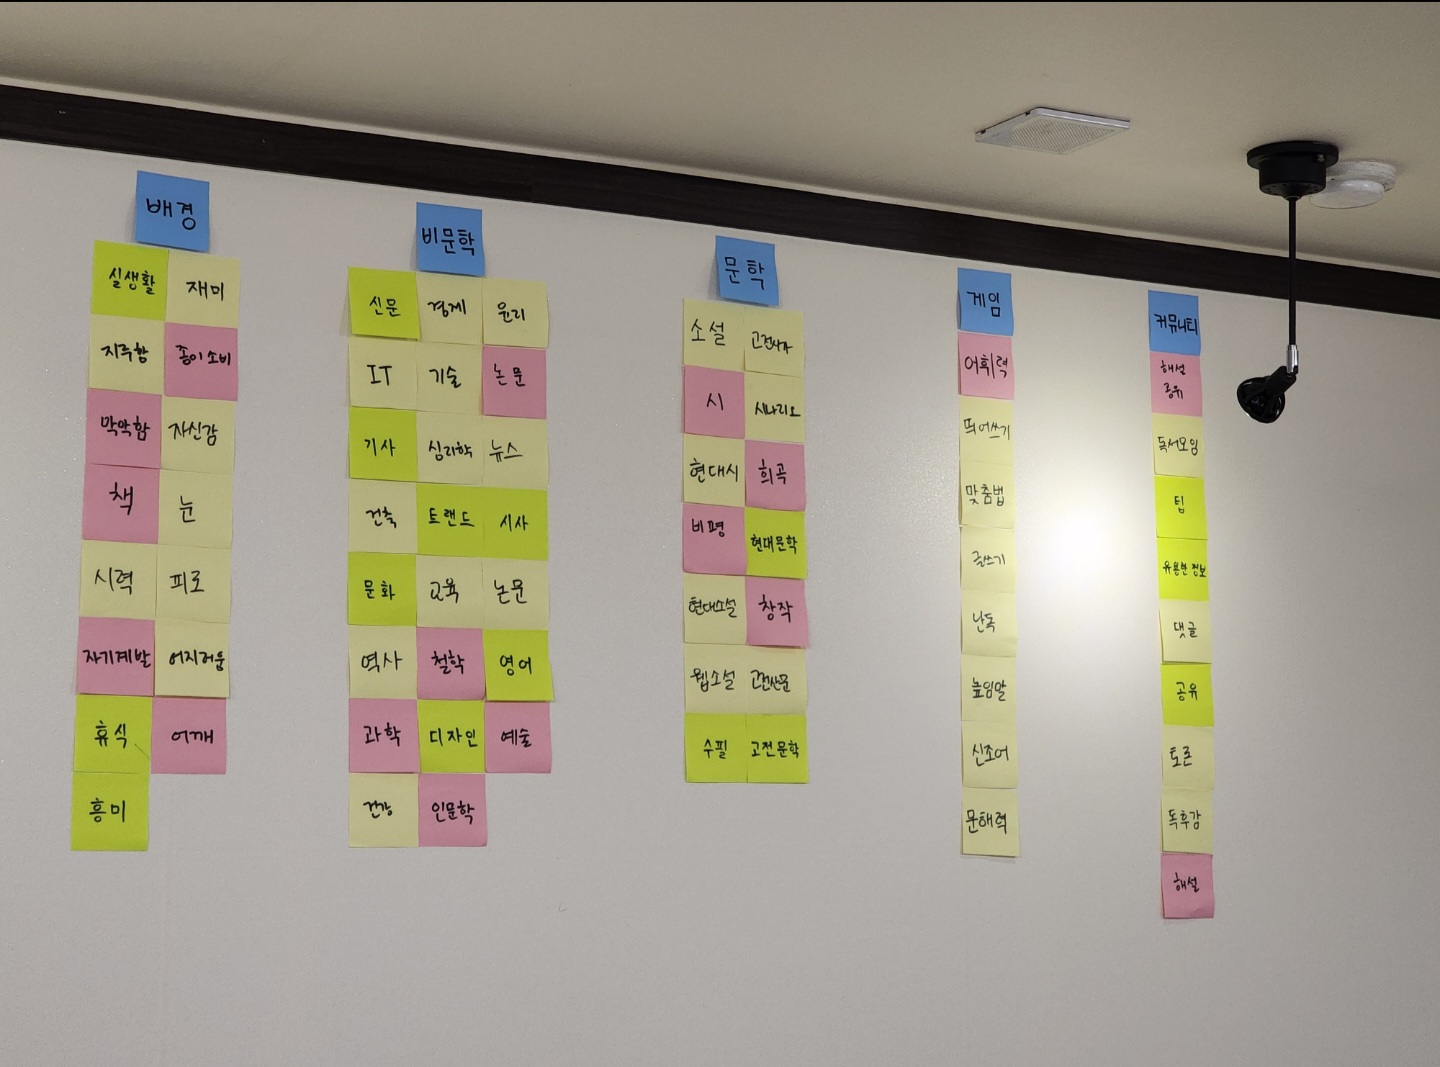 배경
실생활
재미
지루함
종이 소비
막막함
자신감
책
눈
시력
피로
자기계발
어지러움
휴식
어깨
흥미
비문학
신문
경제
윤리
IT
기술
논문
기사
심리학
뉴스
건축
트랜드
시사
문화
교육
논문
역사
철학
영어
과학
디자인
예술
건강
인문학
문학
소설
시
시나리오
현대시
희곡
비평
현대문학
현대소설
창작
웹소설
고전산문
수필
고전문학
게임
어휘력
띄어쓰기
맞춤법
글쓰기
난독
높임말
신조어
문해력
커뮤니티
해설
공유
독서모임
팁
유용한 정보
댓글
공유
토론
독후감
해설